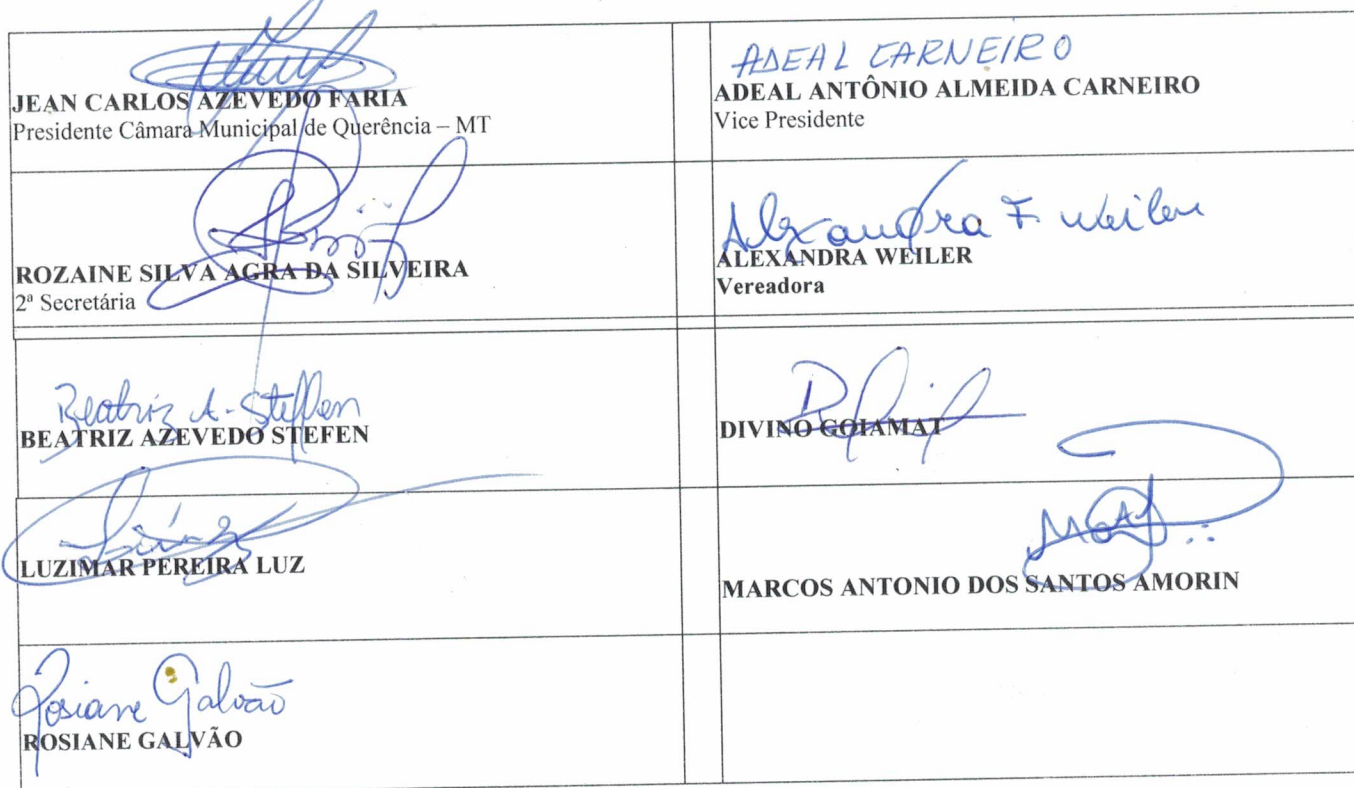 ADEAL CARNEIRO
JEAN CARLOS AZEVEDO FARIA
Presidente Câmara Municipal de Querência – MT
ADEAL ANTÔNIO ALMEIDA CARNEIRO
Vice Presidente
ROZAINE SILVA AGRA DA SILVEIRA
2ª Secretária
Alexandra F. Weiler
ALEXANDRA WEILER
Vereadora
Beatriz A. Steffen
BEATRIZ AZEVEDO STEFEN
DIVINO GOIAMAT
LUZIMAR PEREIRA LUZ
MARCOS ANTONIO DOS SANTOS AMORIN
Rosiane Galvão
ROSIANE GALVÃO